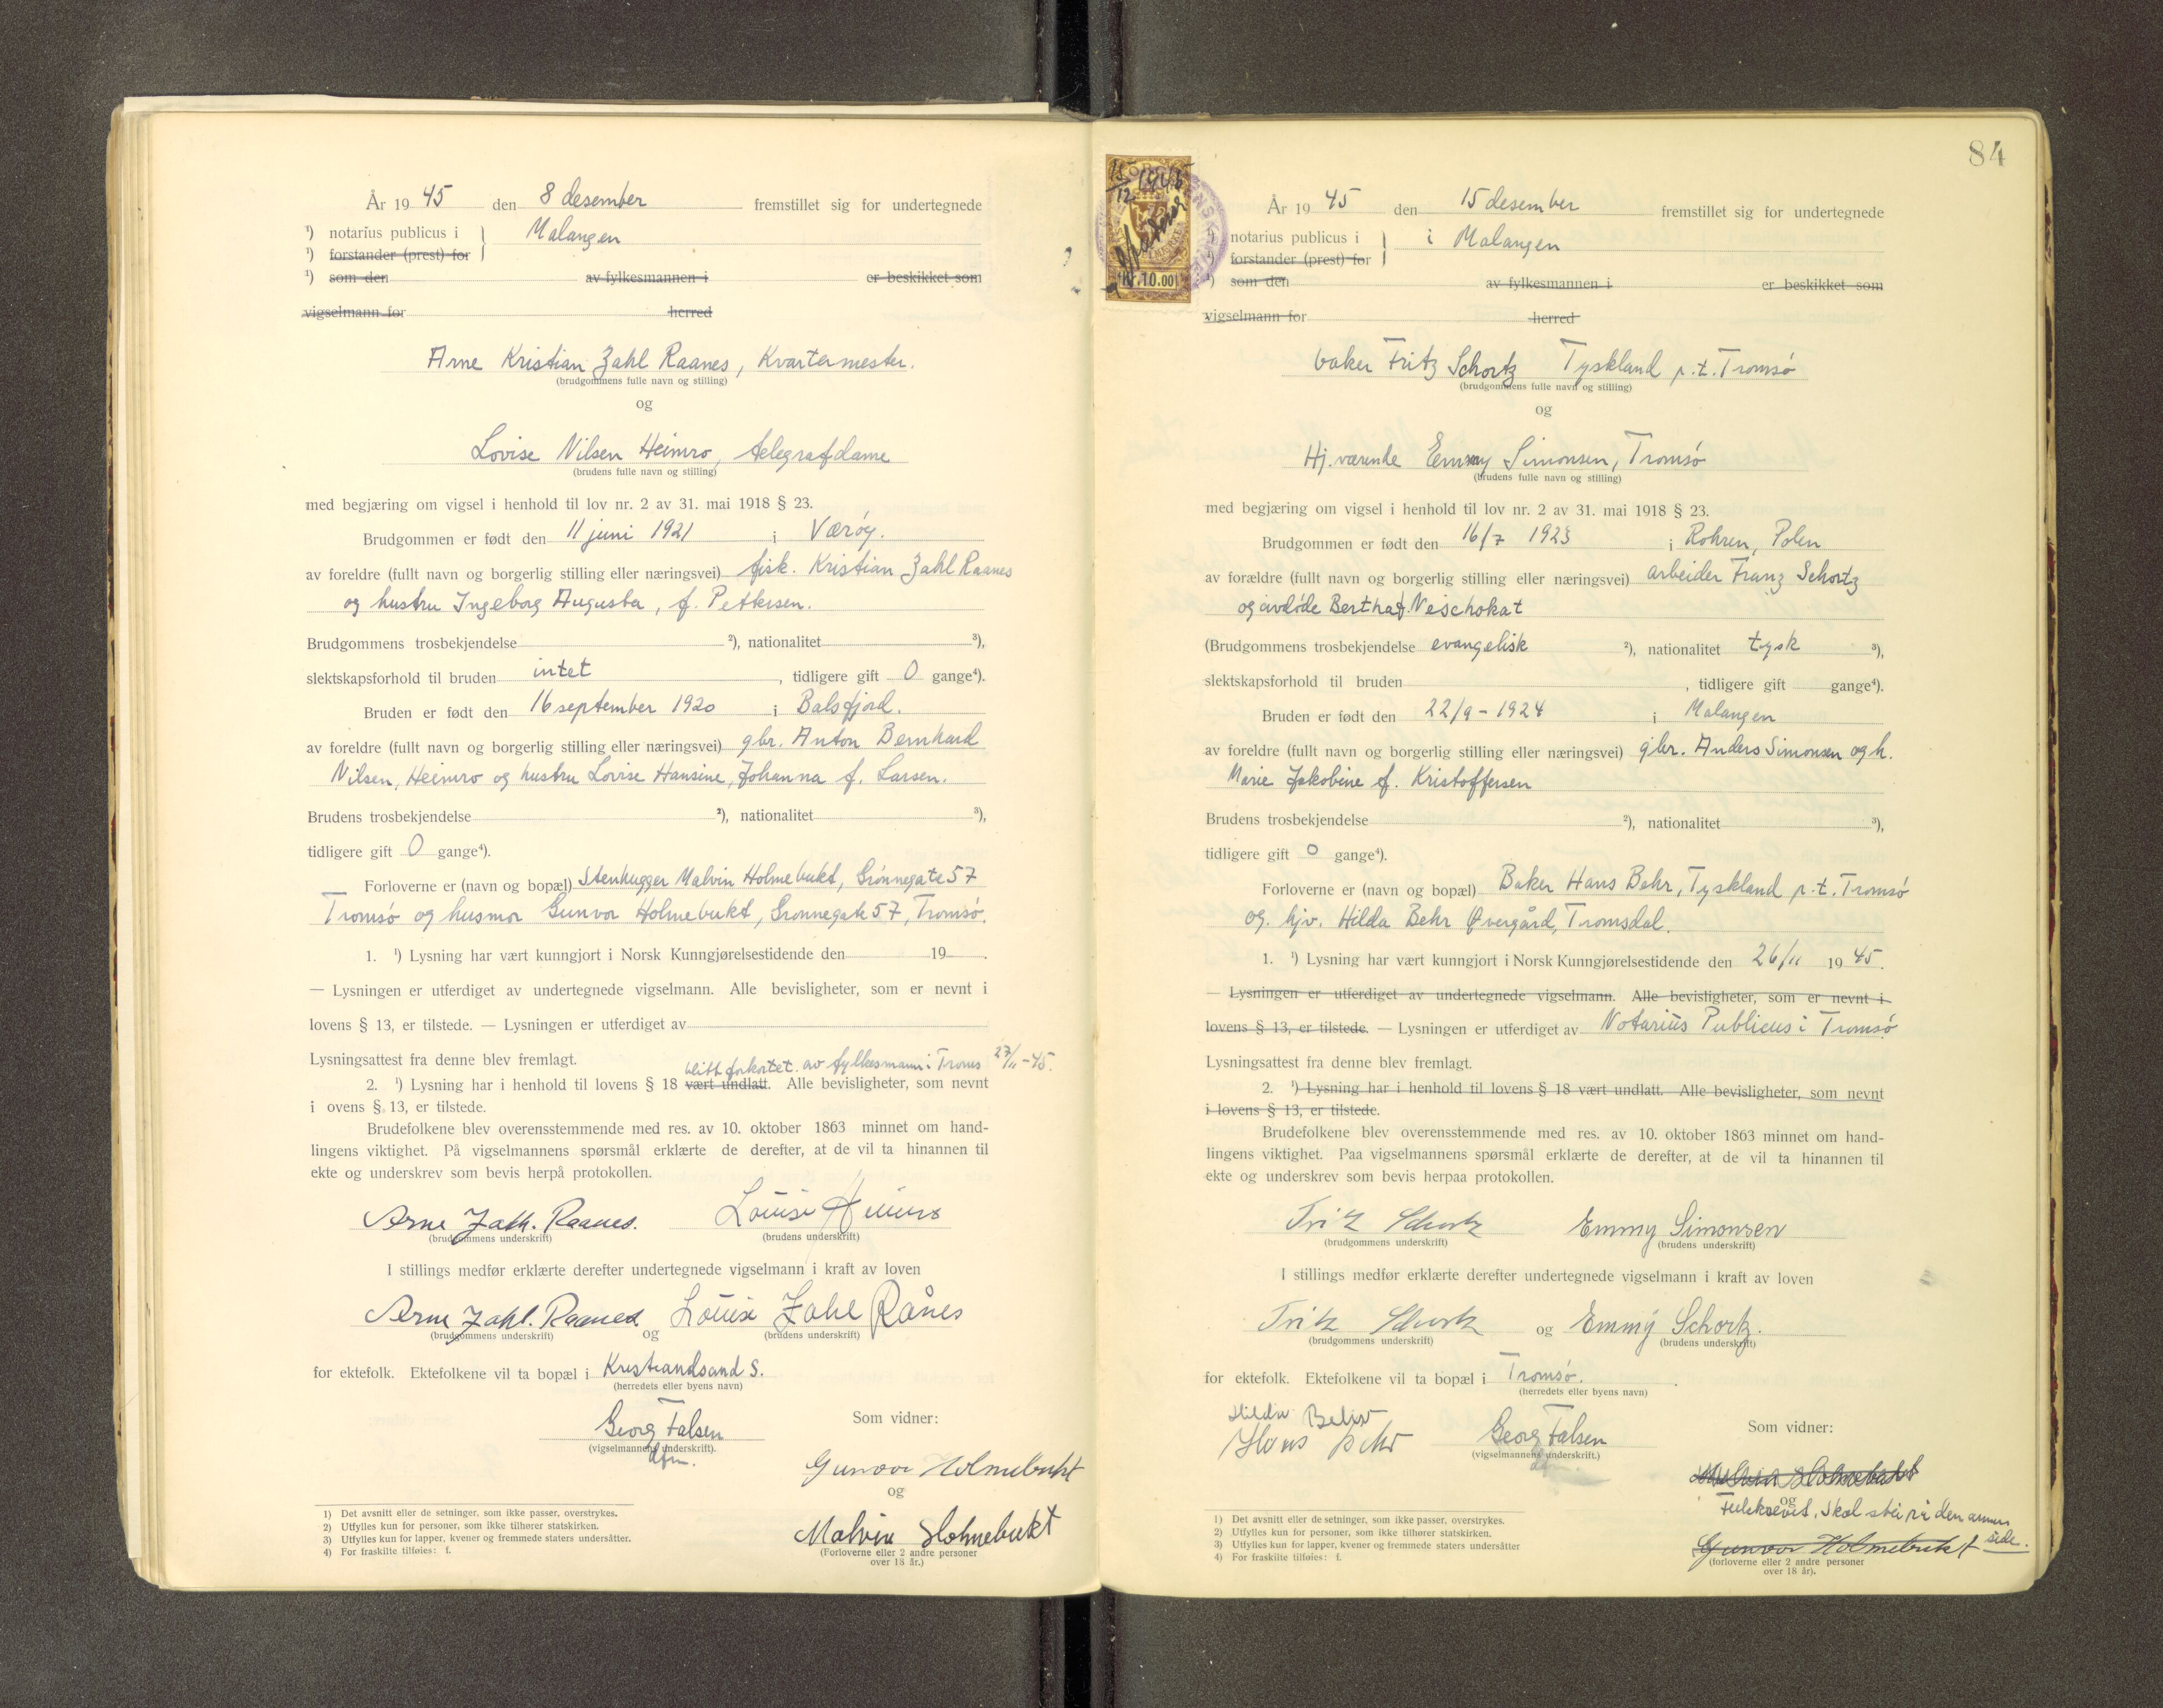 År 1945 den 8 desember fremstillet sig for undertegnede
¹) notarius publicus i } Malangen
¹) forstander (prest) for
¹) som den av fylkesmannen i er beskikket som
vigselmann for herred
Arne Kristian Zahl Raanes, Kvartermester.
(brudgommens fulle navn og stilling)
og
Lovise Nilsen Heimro, telegrafdame
(brudens fulle navn og stilling)
med begjæring om vigsel i henhold til lov nr. 2 av 31. mai 1918 § 23.
Brudgommen er født den 11 juni 1921 i Værøy.
av foreldre (fullt navn og borgerlig stilling eller næringsvei) fisk. Kristian Zahl Raanes
og hustru Ingeborg Augusta, f. Pettersen.
Brudgommens trosbekjendelse ²), nationalitet ³),
slektskapsforhold til bruden intet , tidligere gift 0 gange⁴).
Bruden er født den 16 september 1920 i Balsfjord.
av foreldre (fullt navn og borgerlig stilling eller næringsvei) gbr. Anton Bernhard
Nilsen, Heimro og hustru Lovise Hansine, Johanna f. Larsen.
Brudens trosbekjendelse ²), nationalitet ³),
tidligere gift 0 gange⁴).
Forloverne er (navn og bopæl) Stenhugger Malvin Holmebukt, Grønnegate 57
Tromsø og husmor Gunvor Holmebukt, Grønnegate 57, Tromsø.
1. ¹) Lysning har vært kunngjort i Norsk Kunngjørelsestidende den 19 .
— Lysningen er utferdiget av undertegnede vigselmann. Alle bevisligheter, som er nevnt i
lovens § 13, er tilstede. — Lysningen er utferdiget av
Lysningsattest fra denne blev fremlagt.
blitt forkortet av fylkesmann i Troms 27/11-45.
2. ¹) Lysning har i henhold til lovens § 18 vært undlatt. Alle bevisligheter, som nevnt
i ovens § 13, er tilstede.
Brudefolkene blev overensstemmende med res. av 10. oktober 1863 minnet om hand-
lingens viktighet. På vigselmannens spørsmål erklærte de derefter, at de vil ta hinannen til
ekte og underskrev som bevis herpå protokollen.
Arne Zahl. Raanes. Louise Heimro
(brudgommens underskrift) (brudens underskrift)
I stillings medfør erklærte derefter undertegnede vigselmann i kraft av loven
Arne Zahl. Raanes og Louise Zahl Rånes
(brudgommens underskrift) (brudens underskrift)
for ektefolk. Ektefolkene vil ta bopæl i Kristiandsand S.
(herredets eller byens navn)
Georg Falsen
(vigselmannens underskrift).
dfm.
Som vidner:
Gunvor Holmebukt
og
Malvin Holmebukt
(Forloverne eller 2 andre personer
over 18 år.)
1) Det avsnitt eller de setninger, som ikke passer, overstrykes.
2) Utfylles kun for personer, som ikke tilhører statskirken.
3) Utfylles kun for lapper, kvener og fremmede staters undersåtter.
4) For fraskilte tilføies: f.
84
15/12 1945
Kr. 10.00
År 1945 den 15 desember fremstillet sig for undertegnede
notarius publicus i } i Malangen
forstander (prest) for
¹) som den av fylkesmannen i er beskikket som
vigselmann for herred
baker Fritz Schortz Tyskland p.t. Tromsø
(brudgommens fulle navn og stilling)
og
Hj.værende Emmy Simonsen, Tromsø
(brudens fulle navn og stilling)
med begjæring om vigsel i henhold til lov nr. 2 av 31. mai 1918 § 23.
Brudgommen er født den 16/7 1923 i Rohren, Polen
av forældre (fullt navn og borgerlig stilling eller næringsvei) arbeider Franz Schortz
og avdøde Bertha f. Neschokat
(Brudgommens trosbekjendelse evangelisk ²), nationalitet tysk ³),
slektskapsforhold til bruden , tidligere gift gange⁴).
Bruden er født den 22/9 - 1924 i Malangen
av foreldre (fullt navn og borgerlig stilling eller næringsvei) gbr. Anders Simonsen og h.
Marie Jakobine f. Kristoffersen
Brudens trosbekjendelse ²), nationalitet ³),
tidligere gift 0 gange⁴).
Forloverne er (navn og bopæl) Baker Hans Behr, Tyskland p.t. Tromsø
og. hjv. Hilda Behr Øvergård, Tromsdal.
1. ¹) Lysning har vært kunngjort i Norsk Kunngjørelsestidende den 26/11 1945.
— Lysningen er utferdiget av undertegnede vigselmann. Alle bevisligheter, som er nevnt i
lovens § 13, er tilstede. — Lysningen er utferdiget av Notarius Publicus i Tromsø
Lysningsattest fra denne blev fremlagt.
2. ¹) Lysning har i henhold til lovens § 18 vært undlatt. Alle bevisligheter, som nevnt
i lovens § 13, er tilstede.
Brudefolkene blev overensstemmende med res. av 10. oktober 1863 minnet om hand-
lingens viktighet. Paa vigselmannens spørsmål erklærte de derefter, at de vil ta hinannen til
ekte og underskrev som bevis herpaa protokollen.
Fritz Schortz Emmy Simonsen
(brudgommens underskrift) (brudens underskrift)
I stillings medfør erklærte derefter undertegnede vigselmann i kraft av loven
Fritz Schortz og Emmy Schortz.
(brudgommens underskrift) (brudens underskrift)
for ektefolk. Ektefolkene vil ta bopæl i Tromsø.
(herredets eller byens navn)
Hilda Behr
Hans Behr
Georg Falsen
(vigselmannens underskrift.)
dfm.
Som vidner:
Malvin Holmebukt
og
Feilskrevet. Skal stå på den annen
side.
Gunvor Holmebukt
(forloverne eller 2 andre personer
over 18 år).
1) Det avsnitt eller de setninger, som ikke passer, overstrykes.
2) Utfylles kun for personer, som ikke tilhører statskirken.
3) Utfylles kun for lapper, kvener og fremmede staters undersåtter
4) For fraskilte tilføies: f.